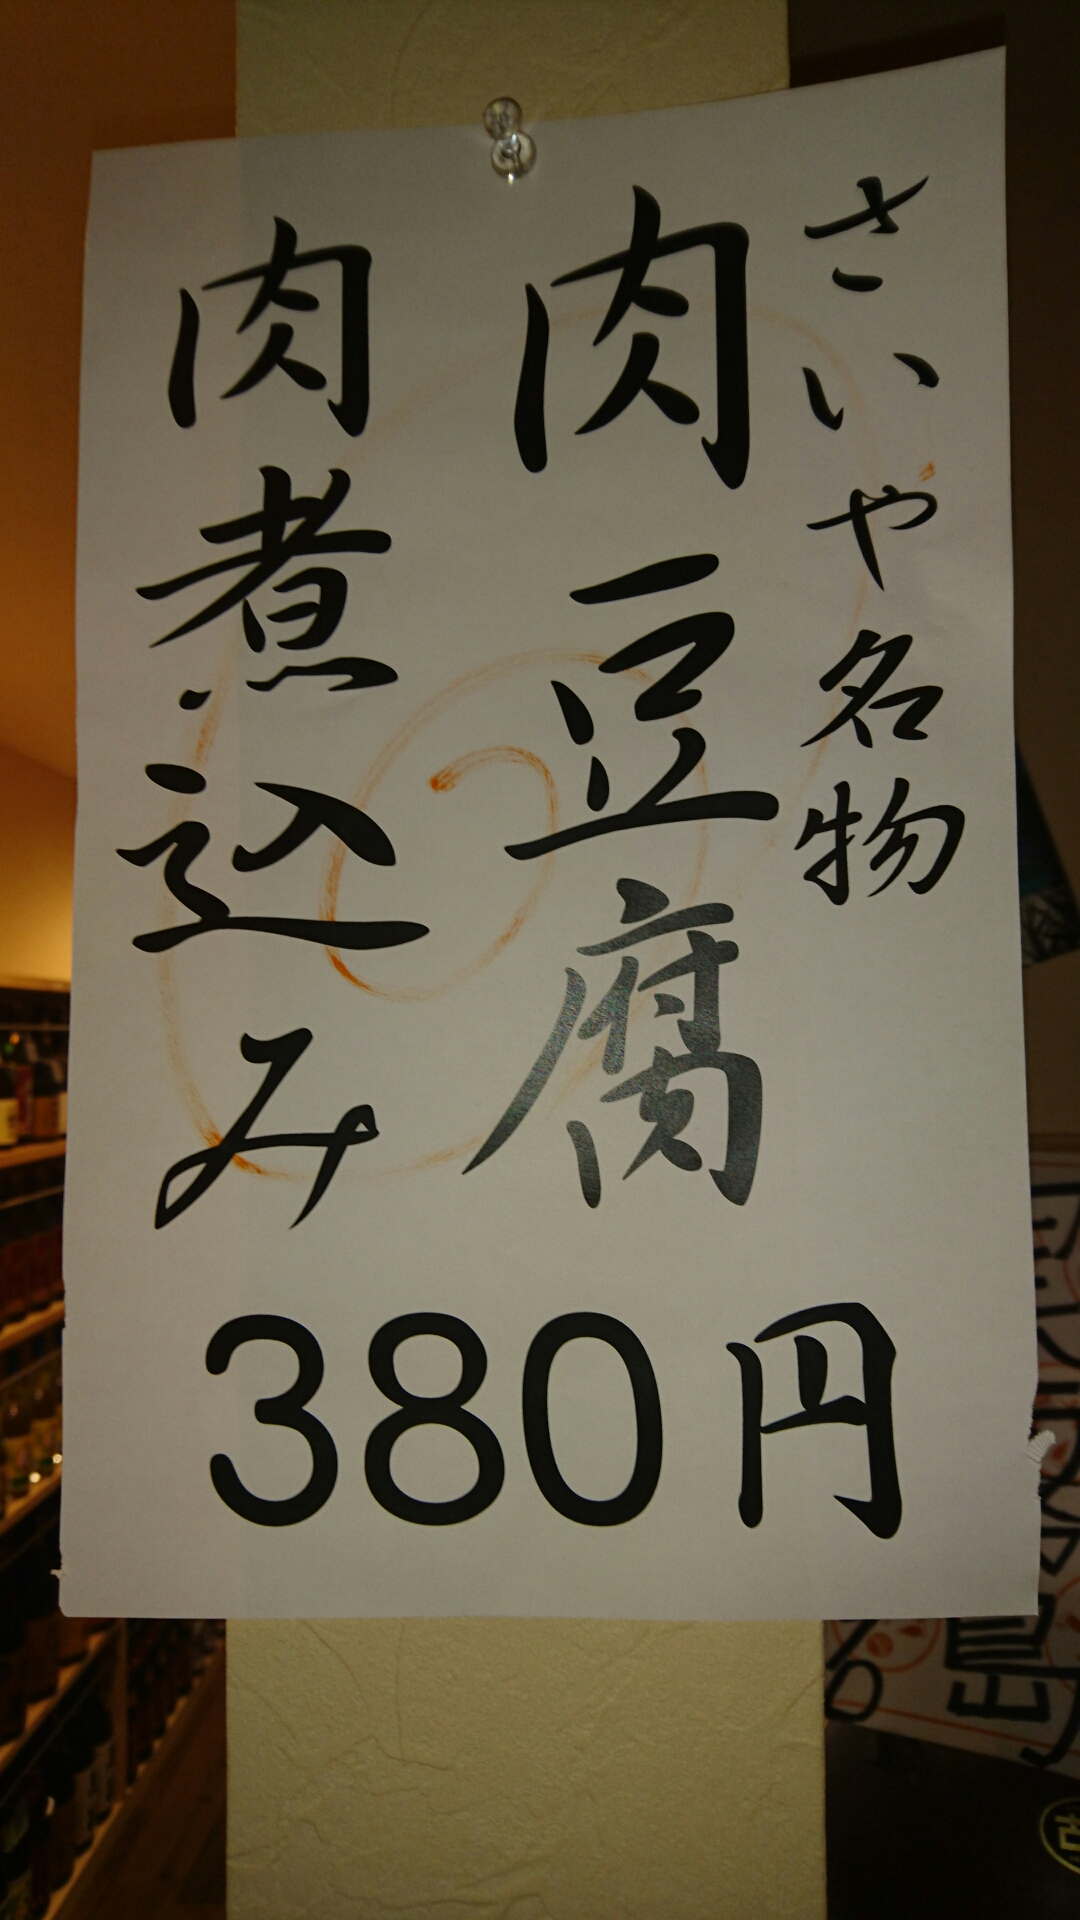 さいや名物
肉豆腐
肉煮込み
380円